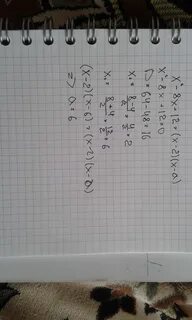 x² - 8x + 12 = (x-2)(x-a)
x² - 8x + 12 = 0
D = 64 - 48 = 16
x₁ = \frac{8-4}{2} = \frac{4}{2} = 2
x₂ = \frac{8+4}{2} = \frac{12}{2} = 6
(x-2)(x-6) = (x-2)(x-a)
=> a = 6